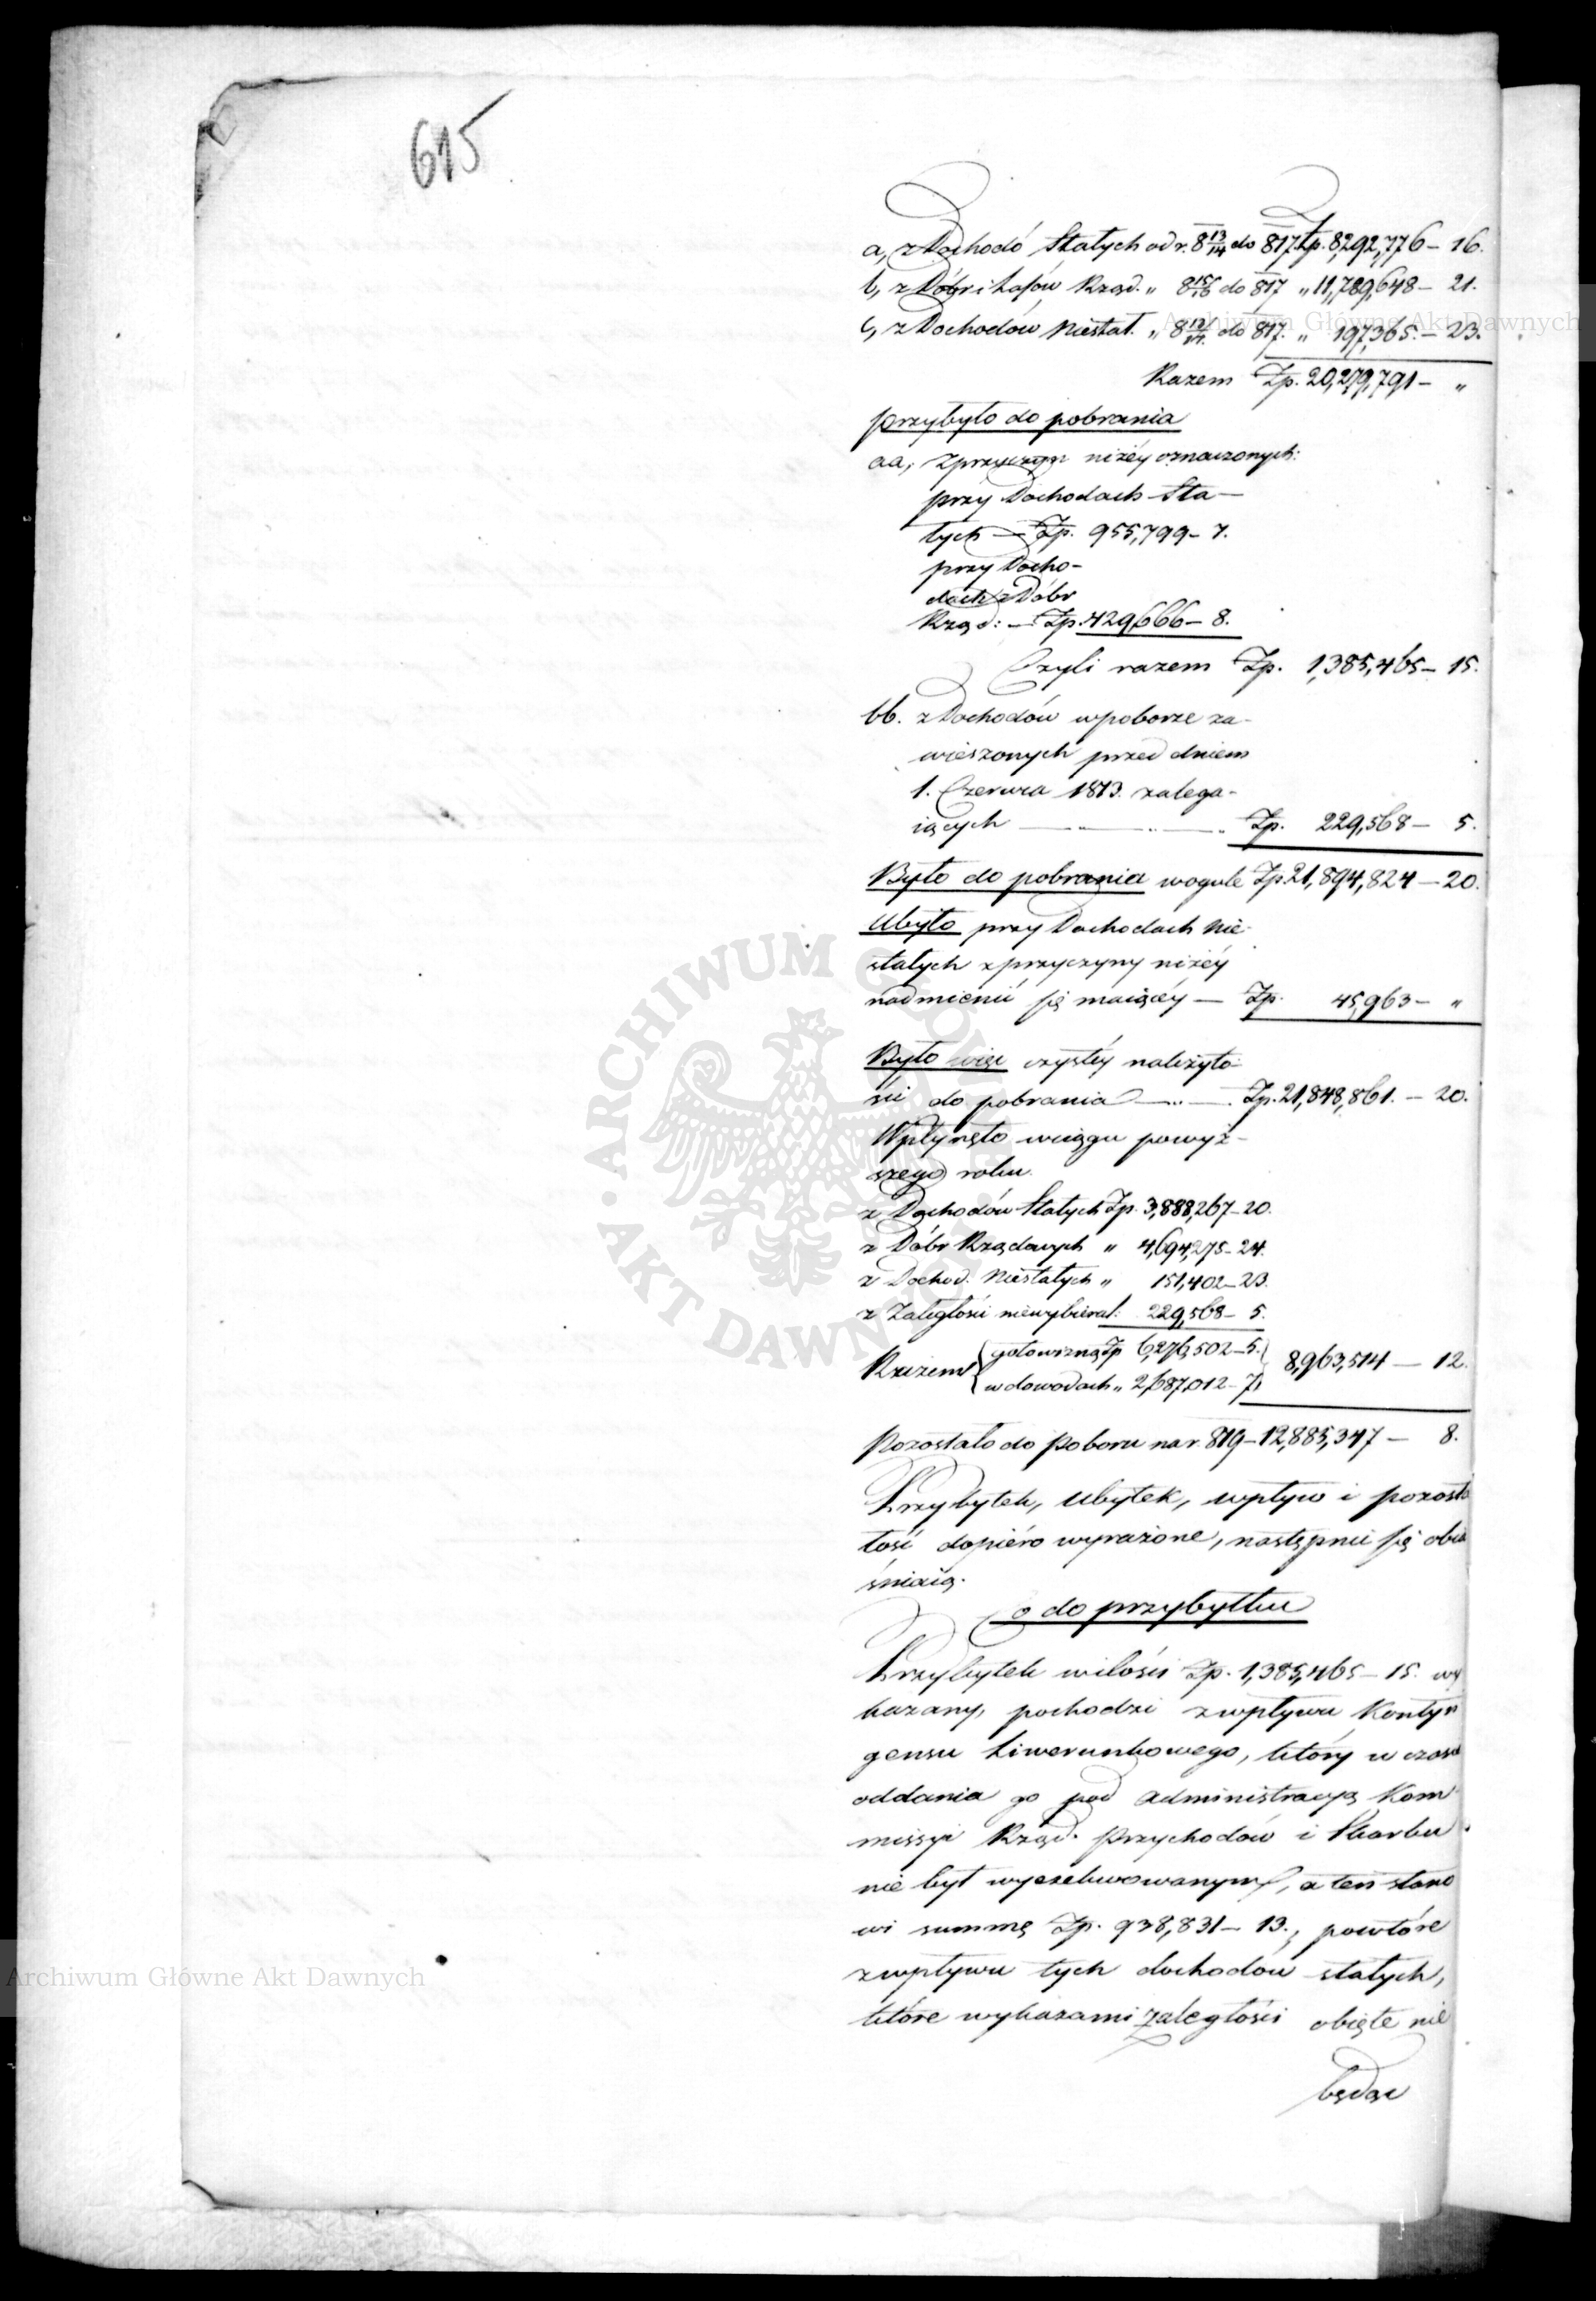 615
a, z Dochodó Stałych od r. 8 13/14 do 817 Zp. 8,292,776 – 16.
b, z Dóbr i Lasów Rząd. „ 8 15/16 do 817 „ 11,789,648 – 21.
c, z Dochodów Niestał. „ 8 13/14. do 817. „ 197,365. – 23.
Razem Zp. 20,279,791 – „
przybyło do pobrania
aa, z przyczyn niżéy oznaczonych:
przy Dochodach Sta–
łych — Zp. 955,799 – 7.
przy Docho–
dach z Dóbr
Rząd: – Zp. 429,666 – 8.
Czyli razem Zp. 1,385,465 – 15.
bb. z Dochodów w poborze za–
wieszonych przed dniem
1. Czerwca 1813. zalega–
iących — Zp. 229,568 – 5.
Było do pobrania wogule Zp. 21,894,824 – 20.
Ubyło przy Dochodach Nie–
stałych z przyczyny niżéy
nadmienić się maiącéy — Zp. 45,963 – „
Było więc czystéy należyto–
ści do pobrania — Zp. 21,848,861. – 20.
Wpłynęło wciągu powyż–
szego roku.
z Dochodów Stałych Zp. 3,888,267 – 20.
z Dóbr Rządowych „ 4,694,275 – 24.
z Dochod. Niestałych „ 151,402 – 23.
z Zaległości niewybieral: 229,568 – 5.
Razem gotowizną Zp 6,276,502 – 5. 8,963,514 — 12.
w dowodach „ 2,687,012 – 7.
Pozostało do Poboru na r. 819 – 12,885,347 – 8.
Przybytek, ubytek, wpływ i pozosta
łość dopiéro wyrażone, następnie się obia
śniaią.
Co do przybytku
Przybytek wilości Zp. 1,385,465 – 15. wy
kazany, pochodzi z wpływu Kontyn
gensu Liwerunkowego, który w czasie
oddania go pod administracyą Kom
missyi Rząd. Przychodów i Skarbu
nie był wyexekwowanym, a ten stano
wi summę Zp. 938,831 – 13., powtóre
z wpływu tych dochodow stałych,
które wykazami zaległości obięte nie
będąc
Archiwum Główne Akt Dawnych
Archiwum Główne Akt Dawnych
ARCHIWUM GŁÓWNE AKT DAWNYCH